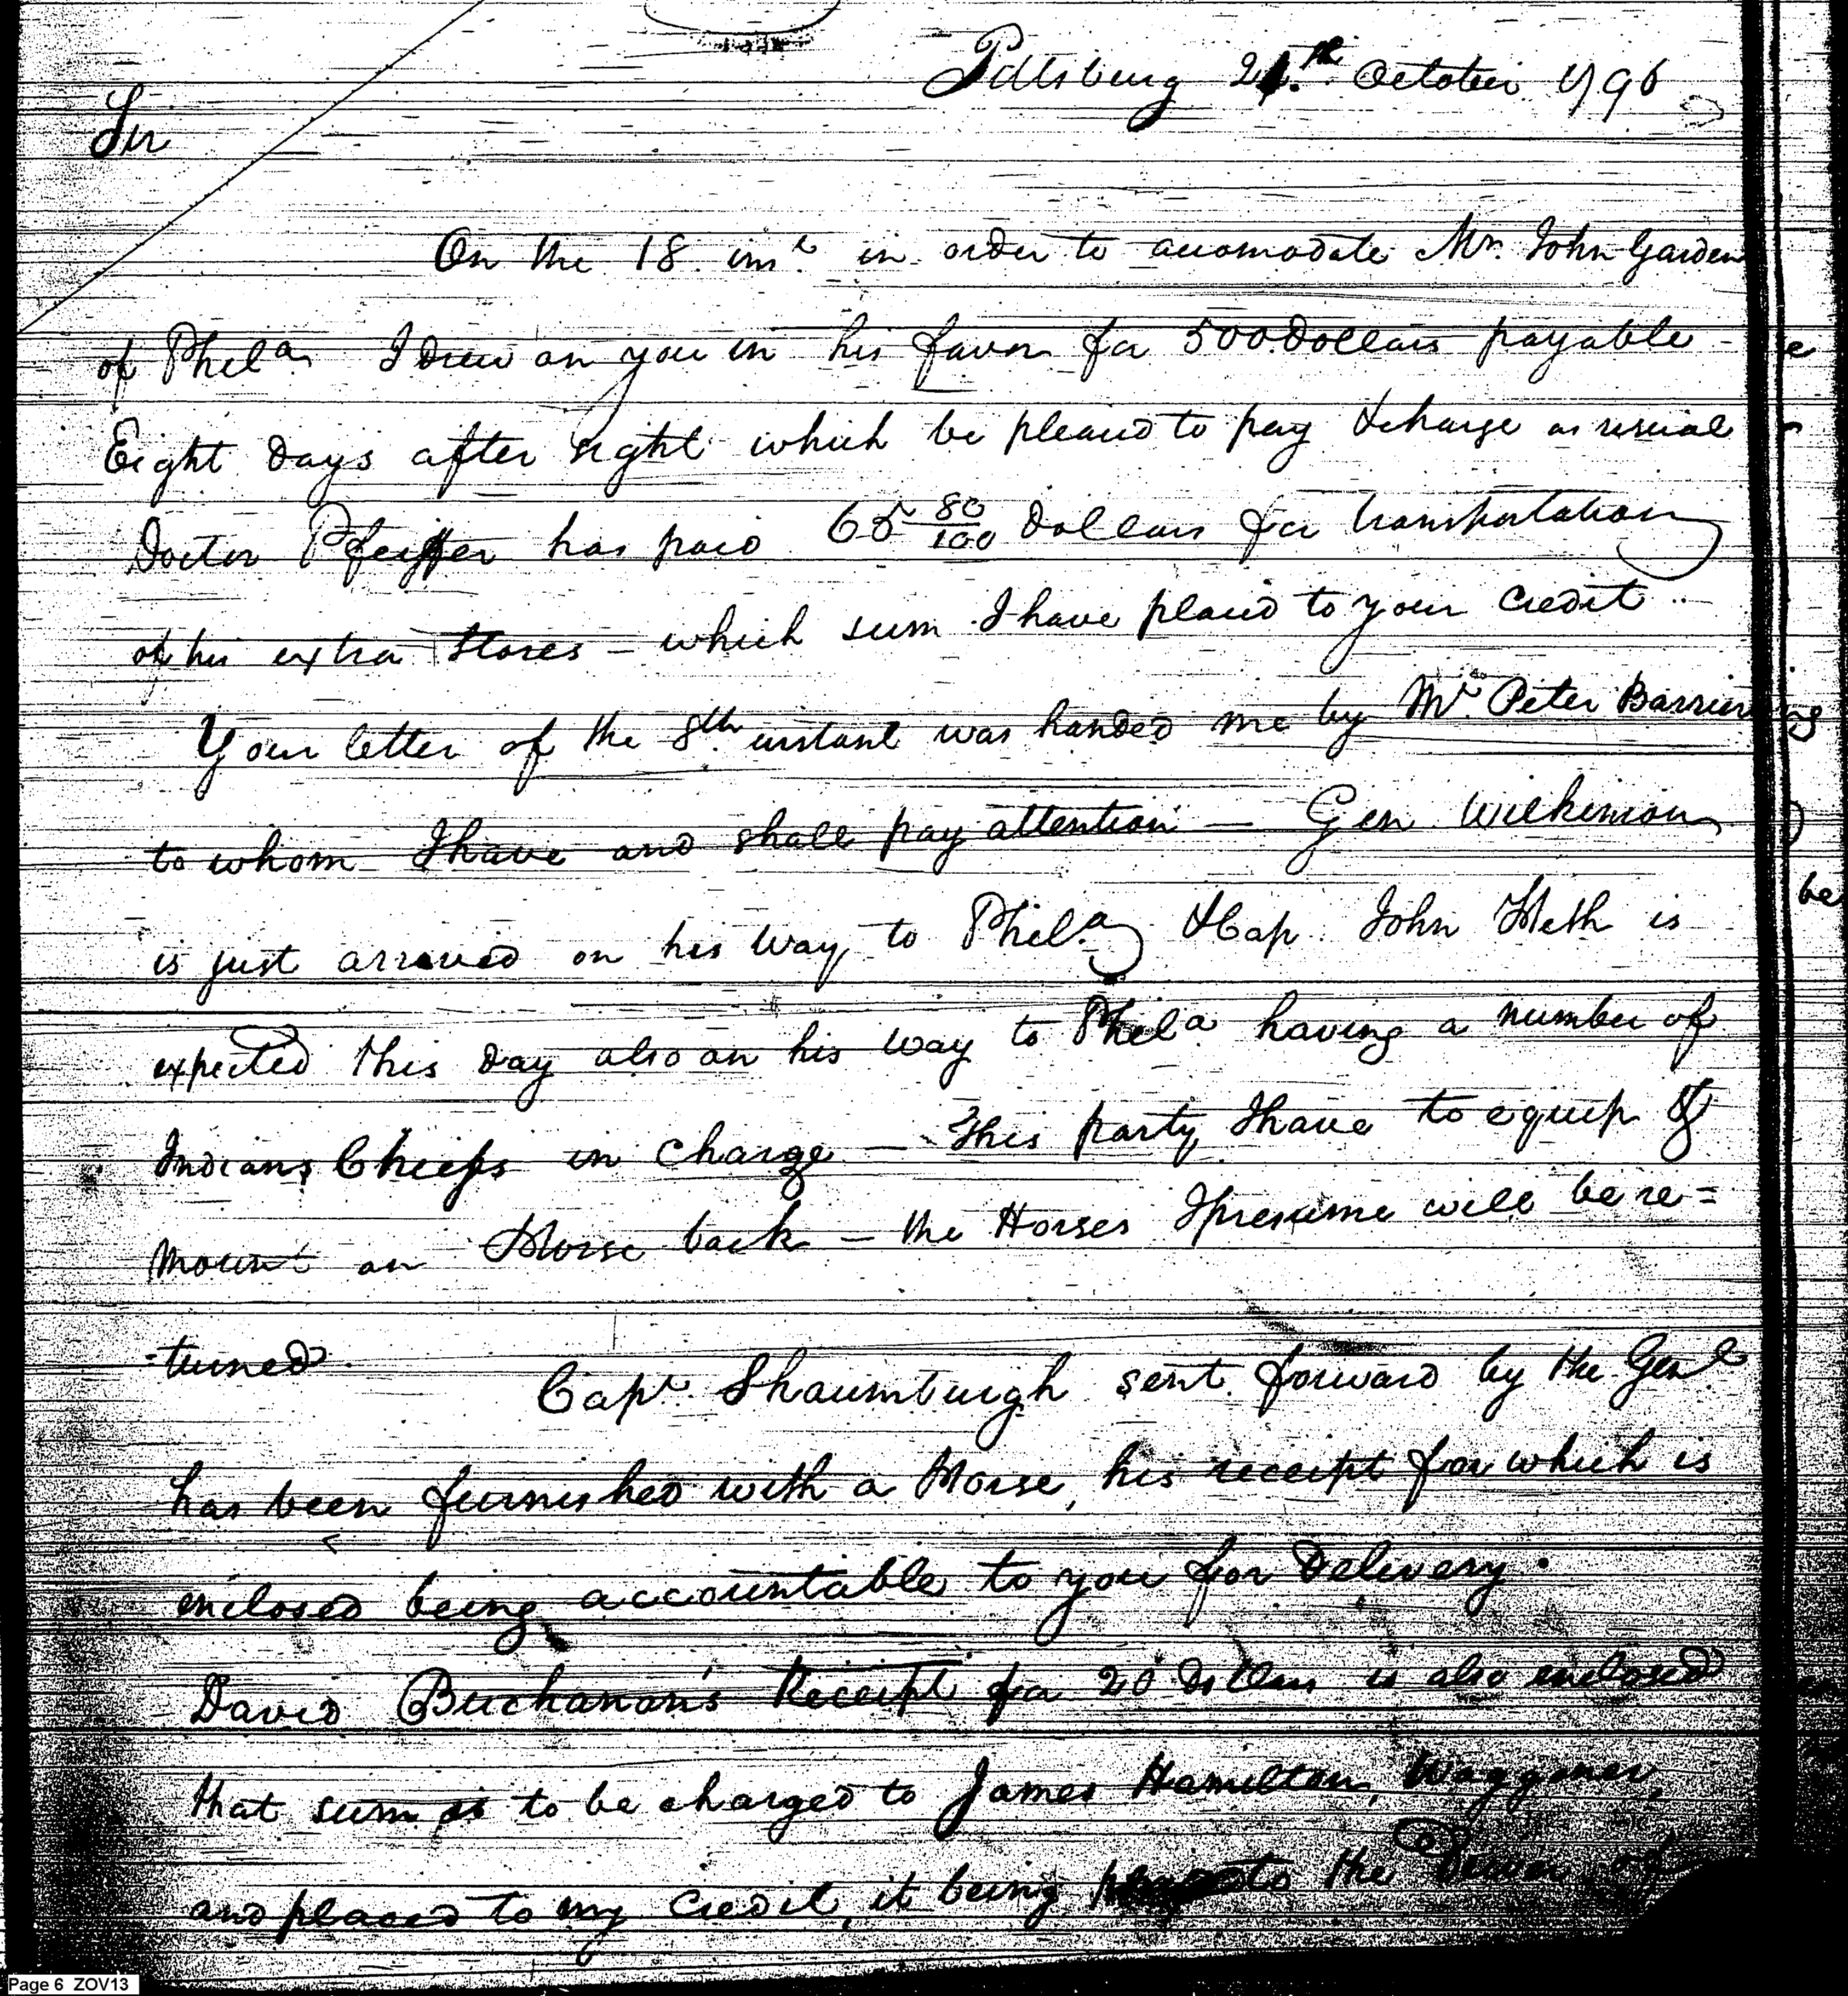 Pittsburg 21.th October 1796
Sir
On the 18. inst. in order to accomodate Mr. John Garden
of Phila. I drew on you in his favor for 500 Dollars payable
Eight days after sight which be pleased to pay & charge as usual
Doctor Pfeiffer has paid 65 80/100 Dollars for transportation
of his extra Stores – which sum I have placed to your Credit ..
Your letter of the 8th instant was handed me by Mr. Peter
to whom I have and shall pay attention — Gen Wilkinson
is just arrived on his way to Phila. & Cap. John Heth is
expected this day also on his way to Phila. having a number of
Indians Chiefs in Charge — This party I have to equip &
mount on Horse back – the Horses I presume will be re=
-turned.
Capt. Shaumburgh sent forward by the Genl
has been furnished with a Horse, his receipt for which is
enclosed being accountable to you for Delivery.
David Buchanan's Receipt for 20 Dollars is also enclosed
that sum is to be charged to James Hamilton, Waggoner,
and placed to my Credit, it being to the of
be
Page 6 ZOV13